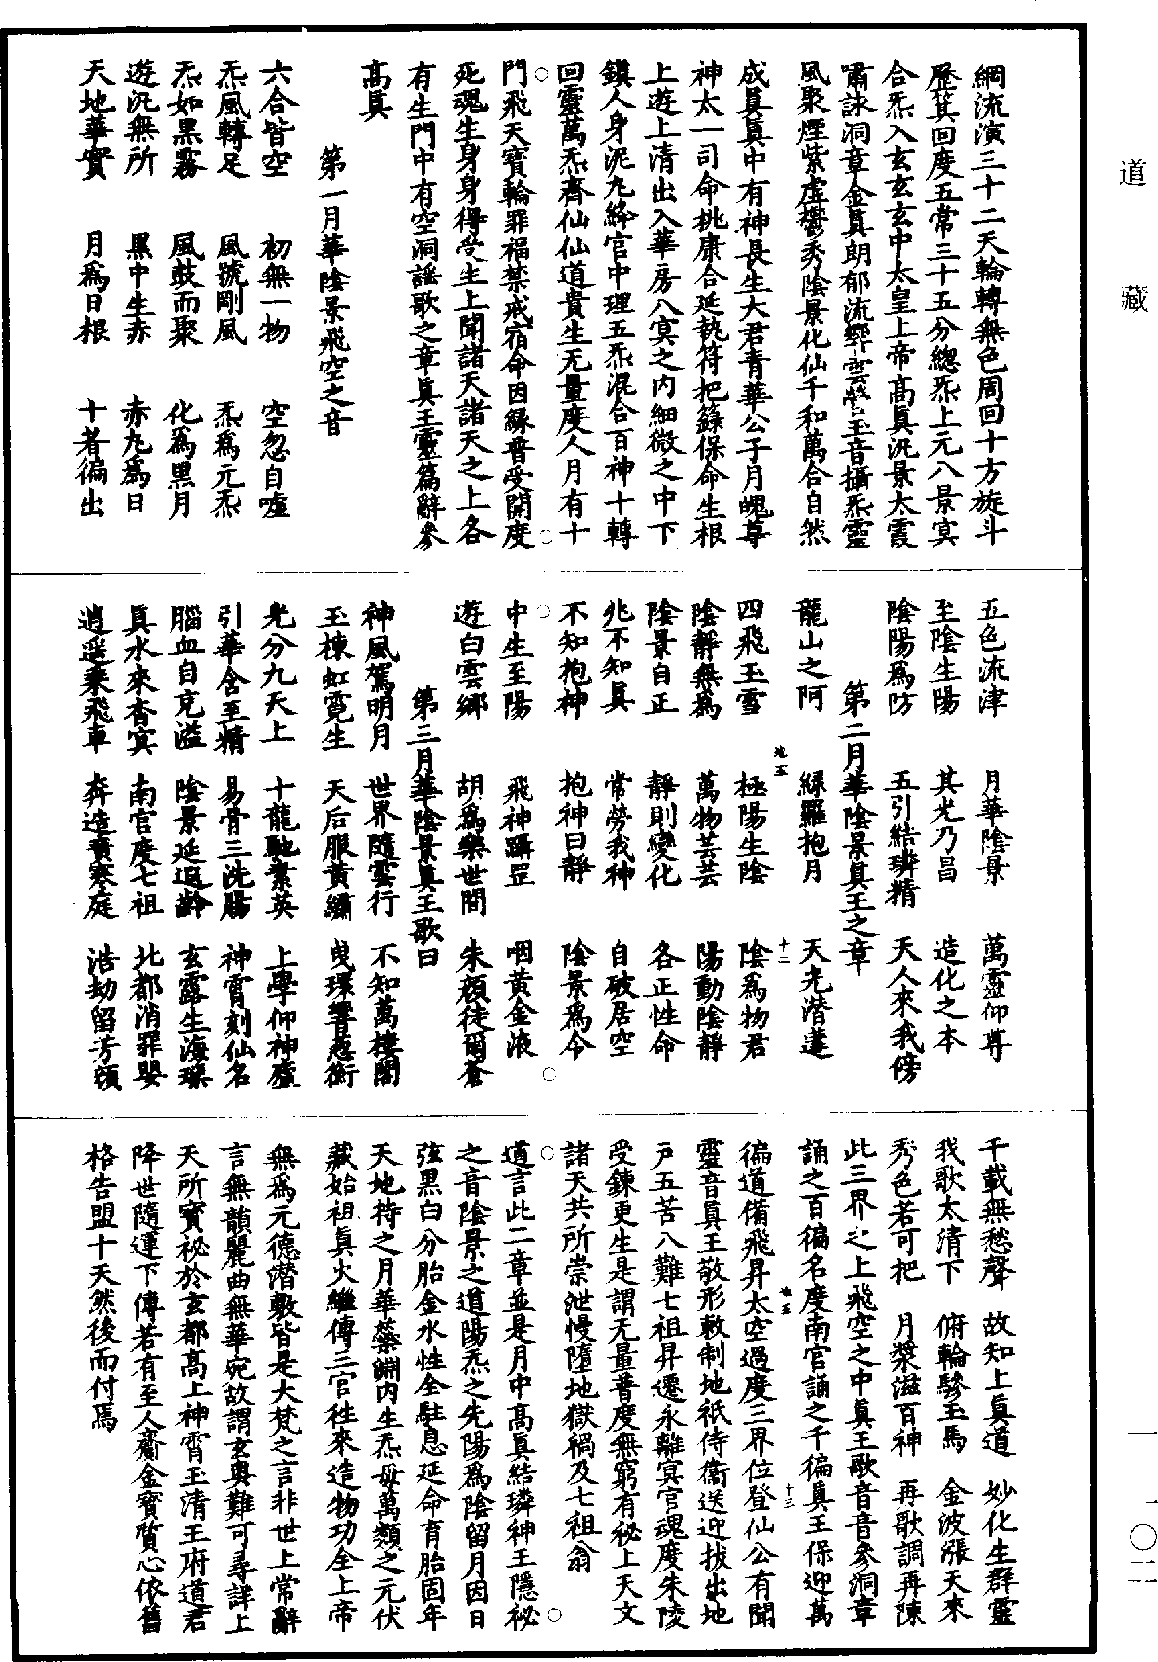 道藏
一一〇二
綱流演三十二天輪轉無色周回十方旋斗
歷箕回度五常三十五分緫炁上元八景冥
合炁入玄玄玄中太皇上帝高眞汎景太霞
嘯詠洞章金眞朗郁流響雲營玉音攝炁靈
風聚煙紫虛鬱秀陰景化仙千和萬合自然
成眞眞中有神長生大君青華公子月魄尊
神太一司命桃康合延執符把籙保命生根
上遊上清出入華房八冥之內細微之中下
鎮人身泥丸絳官中理五炁混合百神十轉
回靈萬炁齊仙仙道貴生无量度人月有十
門飛天寶輪罪福禁戒宿命因緣普受開度
死魂生身身得受生上聞諸天諸天之上各
有生門中有空洞謠歌之章眞王靈篇辭參
高眞
第一月華陰景飛空之音
六合皆空　初無一物　空忽自噓
炁風轉足　風號剛風　炁爲元炁
炁如黑霧　風鼓而聚　化爲黑月
遊汎無所　黑中生赤　赤丸爲日
天地華實　月爲日根　十者徧出
五色流津　月華陰景　萬靈仰尊
至陰生陽　其光乃昌　造化之本
陰陽爲防　五引結璘精　天人來我傍
第二月華陰景眞王之章
龍山之阿　綠羅抱月　天光潛蓬
四飛玉雪　極陽生陰　陰爲物君
陰靜無爲　萬物芸芸　陽動陰靜
陰景自正　靜則變化　各正性命
兆不知眞　常勞我神　自破居空
不知抱神　抱神曰靜　陰景爲令
中生至陽　飛神躡罡　咽黃金液
遊白雲鄉　胡爲樂世間　朱顏徒爾蒼
第三月華陰景眞王歌曰
神風駕明月　世界隨雲行　不知萬樓閣
玉棟虹霓生　天后服黃繡　曳環響葱衡
光分九天上　十龍馳素英　上學仰神廬
引華含至精　易骨三洗腸　神霄刻仙名
腦血自充溢　陰景延遐齡　玄露生海瑛
眞水來杳冥　南官度七祖　北都消罪嬰
逍遥乘飛車　奔造黃寒庭　浩劫留芳頌
千載無愁聲　故知上眞道　妙化生群靈
我歌太清下　俯輪驂玉馬　金波漲天來
秀色若可把　月漿滋百神　再歌調再陳
此三界之上飛空之中眞王歌音音參洞章
誦之百徧名度南官誦之千徧眞王保迎萬
徧道備飛昇太空過度三界位登仙公有聞
靈音眞王敬形敕制地祇侍衞送迎拔出地
戶五苦八難七祖昇遷永離冥官魂度朱陵
受鍊更生是謂无量普度無窮有祕上天文
諸天共所崇泄慢墮地獄禍及七祖翁
道言此二章並是月中高眞結璘神王隱祕
之音陰景之道陽炁之先陽爲陰留月因日
弦黑白分胎金水性全駐息延命育胎固年
天地持之月華蘂淵內生炁毋萬類之元伏
藏始祖眞火繼傳三官徃來造物功全上帝
無爲元德潛敷皆是大梵之言非世上常辭
言無韻麗曲無華宛故謂玄奧難可尋詳上
天所寶祕於玄都高上神霄玉清王府道君
降世隨運下傳若有至人齎金寶質心依舊
格告盟十天然後而付焉